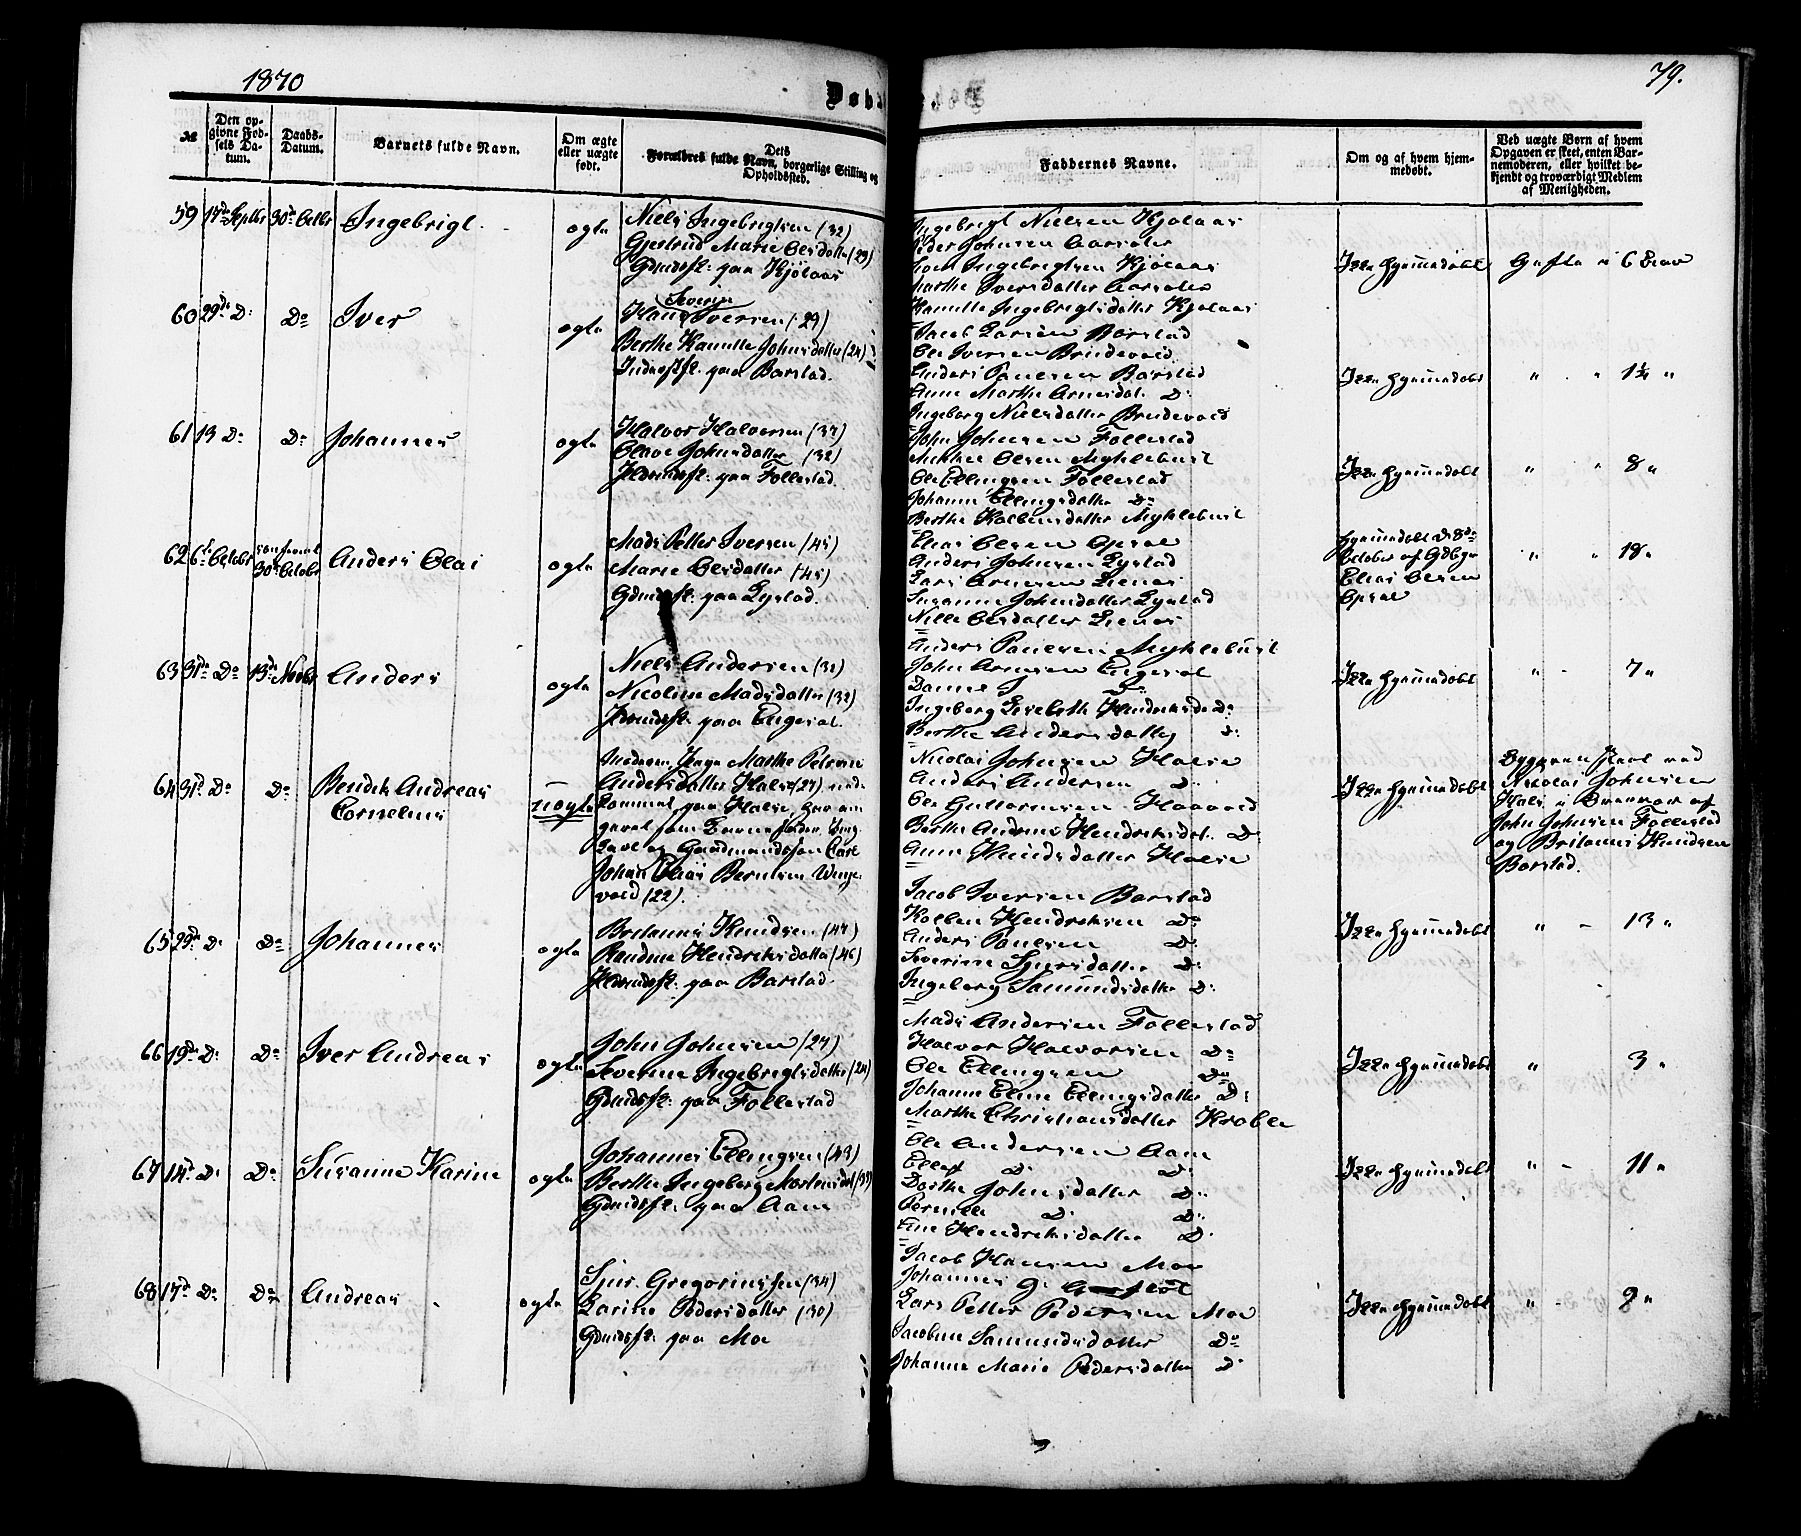 1870
79.
Døbte
№
Den opgivne Fødsels Datum.
Daabs-Datum.
Barnets fulde Navn.
Om ægte eller uægte født.
Dets Forældres fulde Navn, borgerlige Stilling og Opholdssted.
Faddernes Navne.
Om og af hvem hjemmedøbt.
Ved uægte Børn af hvem Opgaven er skeet, enten Barnemoderen, eller hvilket bekjendt og troværdigt Medlem af Menigheden.
59 17de Septbr 30te Octbr Ingebrigt ægte
Niels Ingebrigtsen (32)
Gjertrud Marie Olsdatter (29)
Gdmdsfk: paa Kjølaas
Ingebrigt Nielsen Kjølaas
Peder Johnsen Aarsæter
Ingebrigtsen Kjølaas
Marthe Iversdatter Aarsæter
Kanutte Ingebrigtsdatter Kjølaas
Ikke hjemmedøbt
60 29de Do Do Iver ægte
Hans Severin Iversen (29)
Berthe Kanutte Johnsdatter (24)
Indrstfk: paa Barstad.
Jacob Larsen Barstad
Ole Iversen Brudevold
Anders Paulsen Barstad
Anne Marthe Arnesdat. Do
Ingeborg Nielsdatter Brudevold
Ikke hjemmedøbt
" " 1¼ "
61 13 Do Do Johannes ægte
Halvor Halvorsen (37)
Olave Johnsdatter (32)
Gdmdsfk: paa Follestad.
John Johnsen Follestad
Olsen Myklebust
Ole Ellingsen Follestad
Johanne Ellingsdatter Do
Berthe Kolbensdatter Myklebust
Ikke hjemmedøbt
" " 8 "
62 6te Octobr confirmert 30te Octobr Anders Olai ægte
Mads Petter Iversen (45)
Marie Olsdatter (45)
Gdmdsfk: paa Lystad.
Elias Olsen Opsal
Anders Johnsen Lystad
Lars Arnesen Lienes
Susanne Johnsdatter Lystad
Nille Olsdatter Lienes
hjemmedøbt d. 8de October af Gdbgr Elias Olsen Opsal
" " 18 "
63 31te Do 13de Novbr Anders ægte
Niels Andersen (31)
Nicoline Madsdatter (32)
Gdmdsfk: paa Engeset.
Anders Paulsen Myklebust
John Arnesen Engeset
Danne Do
Ingeborg Lisebeth Hendriksd. Do
Berthe Andersdatter Do
Ikke hjemmedøbt
" " 7 "
64 31te Do Do Bendik Andreas Cornelius uægte
Moderen Pige Marthe Petrine
Andersdatter Halse (27)
paa Halse, har om-
givet som Barnefader Ung-
karl og Gaardmandssøn Carl
Johan Elias Berntsen Winge-
vold (22).
Nicolai Johnsen Halse
Anders Andersen Do
Ole Guttormsen Haavold
Berthe Andrine Hendriksdat. Do
Anne Knudsdatter Halse
Ikke hjemmedøbt
Nicolai Johnsen
Halse
John Johnsen Follestad
og Britanus Knudsen
Barstad.
65 29de Do Do Johannes ægte
Britanus Knudsen (47)
Randine Hendriksdatter (46)
Gdmdsfk: paa Barstad.
Jacob Iversen Barstad
Kolben Hendriksen Do
Anders Paulsen Do
Severine Sjursdatter Do
Ingeborg Samundsdatter Do
Ikke hjemmedøbt
" " 13 "
66 19de Do Do Iver Andreas ægte
John Johnsen (27)
Severine Ingebrigtsdatter (24)
Gdmdsfk: paa Follestad
Mads Andersen Follestad
Halvor Halvorsen Do
Ole Ellingsen Do
Johanne Eline Ellingsdatter Do
Marthe Christiansdatter Krøble
Ikke hjemmedøbt
" 3 "
67 14de Do Do Susanne Karine ægte
Johannes Ellingsen (43)
Berthe Ingeborg Mortensdat (39)
Gdmdsfk: paa Aam
Ole Andersen Aam
Ellef Do Do
Dorthe Johnsdatter Do
Pernille Do Do
Ane Hendriksdatter Do
Ikke hjemmedøbt
" " 11 "
68 17de Do Do Andreas ægte
Sjur Gregoriussen (34)
Larine Pedersdatter (30)
Gdmdsfk: paa Moe
Jacob Hansen Moe
Johannes
Lars Petter Pedersen Moe
Jacobine Samundsdatter Do
Johanne Marie Pedersdatter Do
Ikke hjemmedøbt
" "